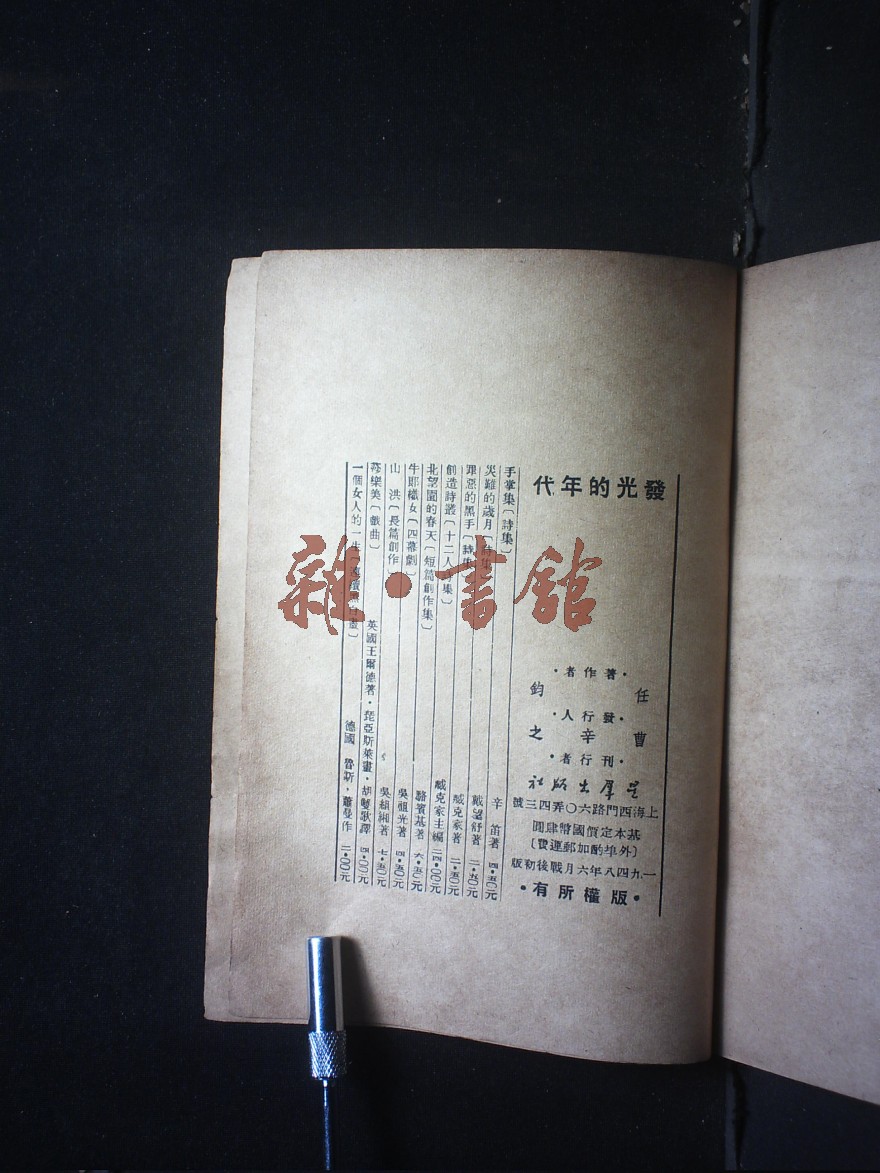 發光的年代
·著作者·
任鈞
·發行人·
曹辛之
·刊行者·
星羣出版社
上海西門路六〇弄四三號
基本定價國幣肆圓
〔外埠酌加郵運費〕
一九四八年六月戰後初版
·版權所有·
手掌集〔詩集〕 辛笛著 四·五〇元
災難的歲月〔詩集〕 戴望舒著 二·五〇元
罪惡的黑手〔詩集〕 臧克家著 二·五〇元
創造詩叢〔十二人詩集〕 臧克家主編 二四·〇〇元
北望園的春天〔短篇創作集〕 駱賓基著 六·五〇元
牛郎織女〔四幕劇〕 吳祖光著 四·五〇元
山洪〔長篇創作〕 吳組緗著 七·五〇元
莎樂美〔戲曲〕 英國王爾德著·琵亞斯萊畫·胡雙歌譯 四·〇〇元
一個女人的一生〔連續黑白畫〕 德國 魯斯·蕭曼作 二·〇〇元
雜·書館